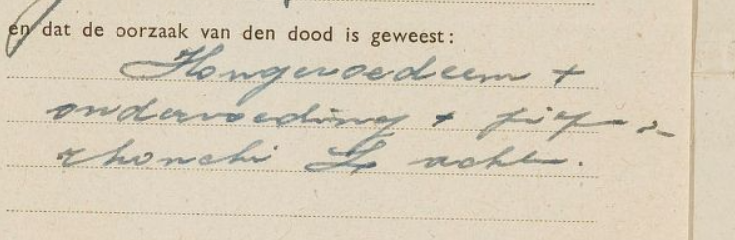 en dat de oorzaak van den dood is geweest:
Hongeroedeem +
ondervoeding +
rhonchi L achter.